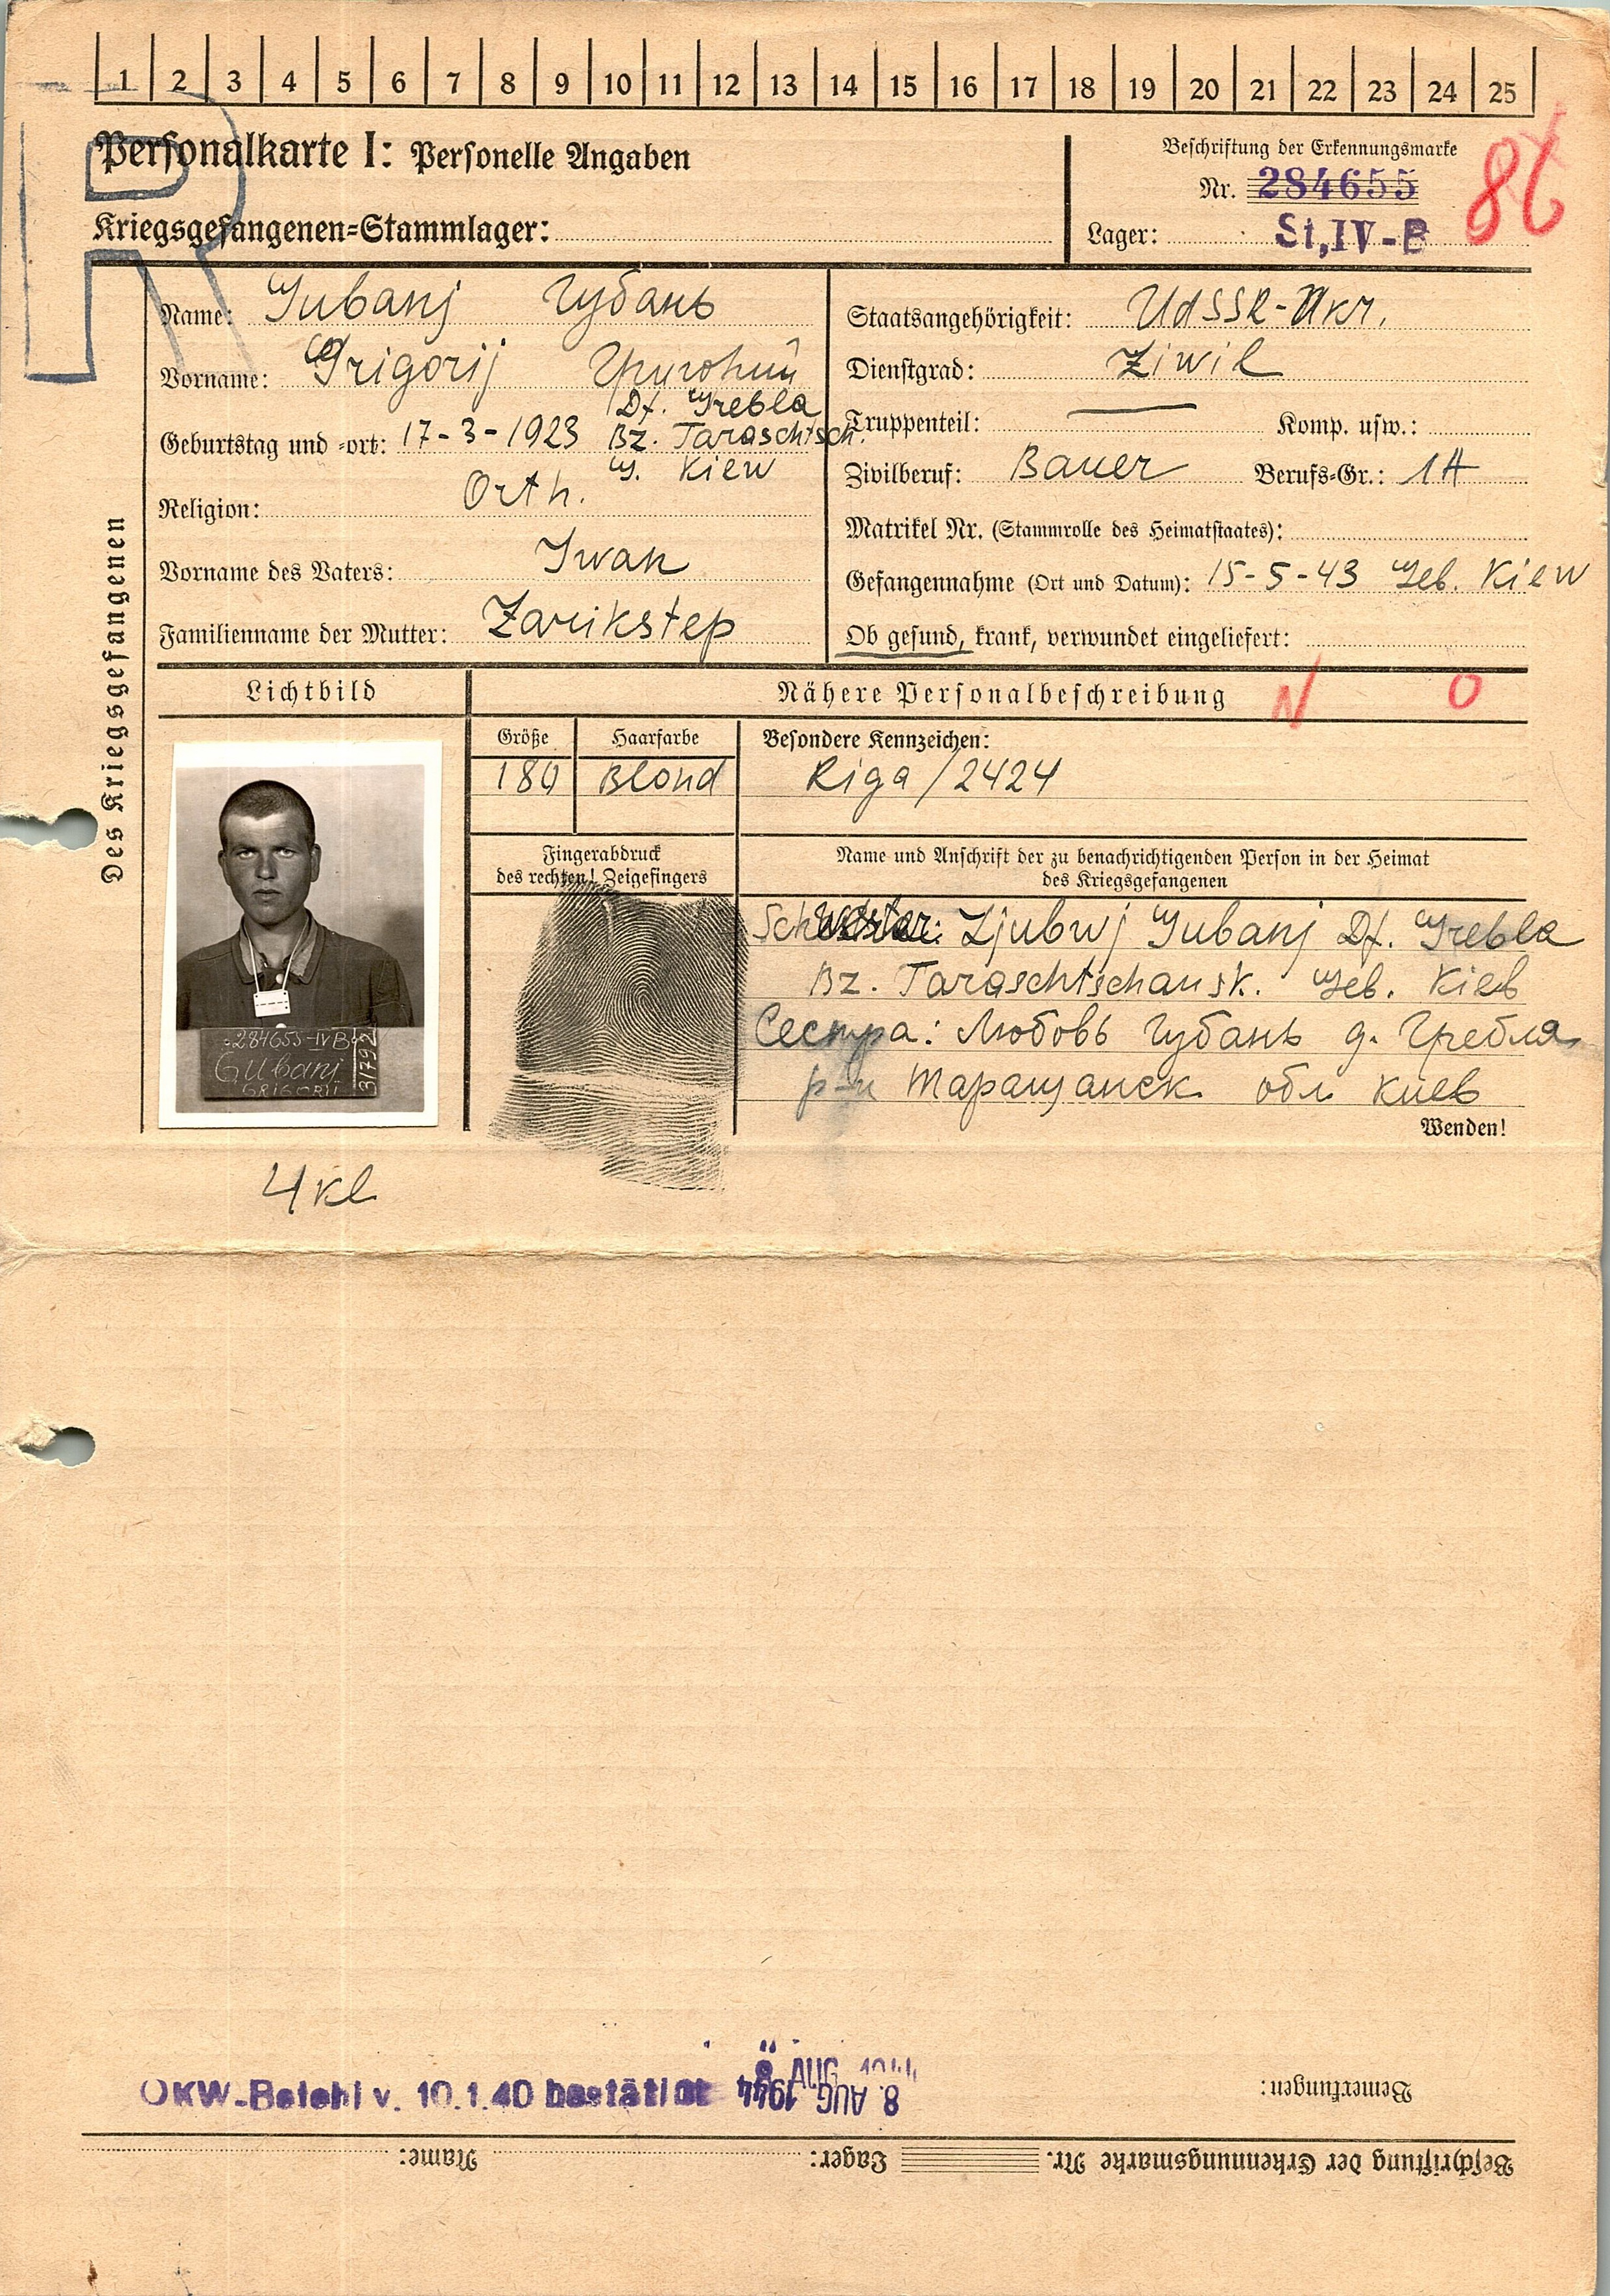 1 2 3 4 5 6 7 8 9 10 11 12 13 14 15 16 17 18 19 20 21 22 23 24 25
Personalkarte I: Personelle Angaben
Kriegsgefangenen-Stammlager:
Beschriftung der Erkennungsmarke
Nr. 284655
Lager: St,IV-B
86
R
Des Kriegsgefangenen
Name: Gubanj Губань
Vorname: Grigorij
Df. Grebla
Geburtstag und -ort: 17-3-1923 Bz. Taraschtsch.
G. Kiew
Religion: Orth.
Vorname des Vaters: Iwan
Familienname der Mutter: Zarikstep
Staatsangehörigkeit: UdSSR-Ukr.
Dienstgrad: Ziwil
Truppenteil: — Komp. usw.:
Zivilberuf: Bauer Berufs-Gr.: 1A
Matrikel Nr. (Stammrolle des Heimatstaates):
Gefangennahme (Ort und Datum): 15-5-43 Geb. Kiew
Ob gesund, krank, verwundet eingeliefert:
Lichtbild
Nähere Personalbeschreibung N O
Größe Haarfarbe Besondere Kennzeichen:
180 Blond Riga/2424
Fingerabdruck
des rechten! Zeigefingers
Name und Anschrift der zu benachrichtigenden Person in der Heimat
des Kriegsgefangenen
Schwester: Ljubwj Gubanj Df. Grebla
Bz. Taraschtschansk. Geb. Kieb
Сестра: Любовь Губань д. Гребля
р-н Таращанск обл Киев
Wenden!
284655-IVB
Gubanj
GRIGORII
4 kl
OKW-Befehl v. 10.1.40 bestätigt
8. AUG 1944
8. AUG 1944
Bemerkungen:
Beschriftung der Erkennungsmarke Nr. Lager: Name: